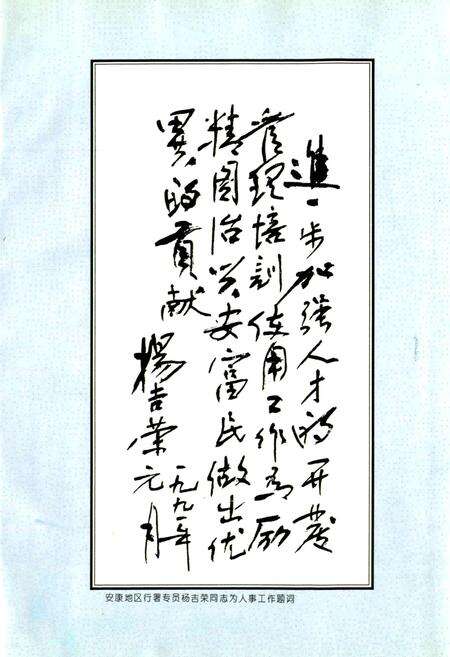 進一步加强人才的开发
管理培训使用工作为励
精图治兴安富民做出优
異的貢献
楊吉荣
一九九一年
元月
安康地区行署专员杨吉荣同志为人事工作题词